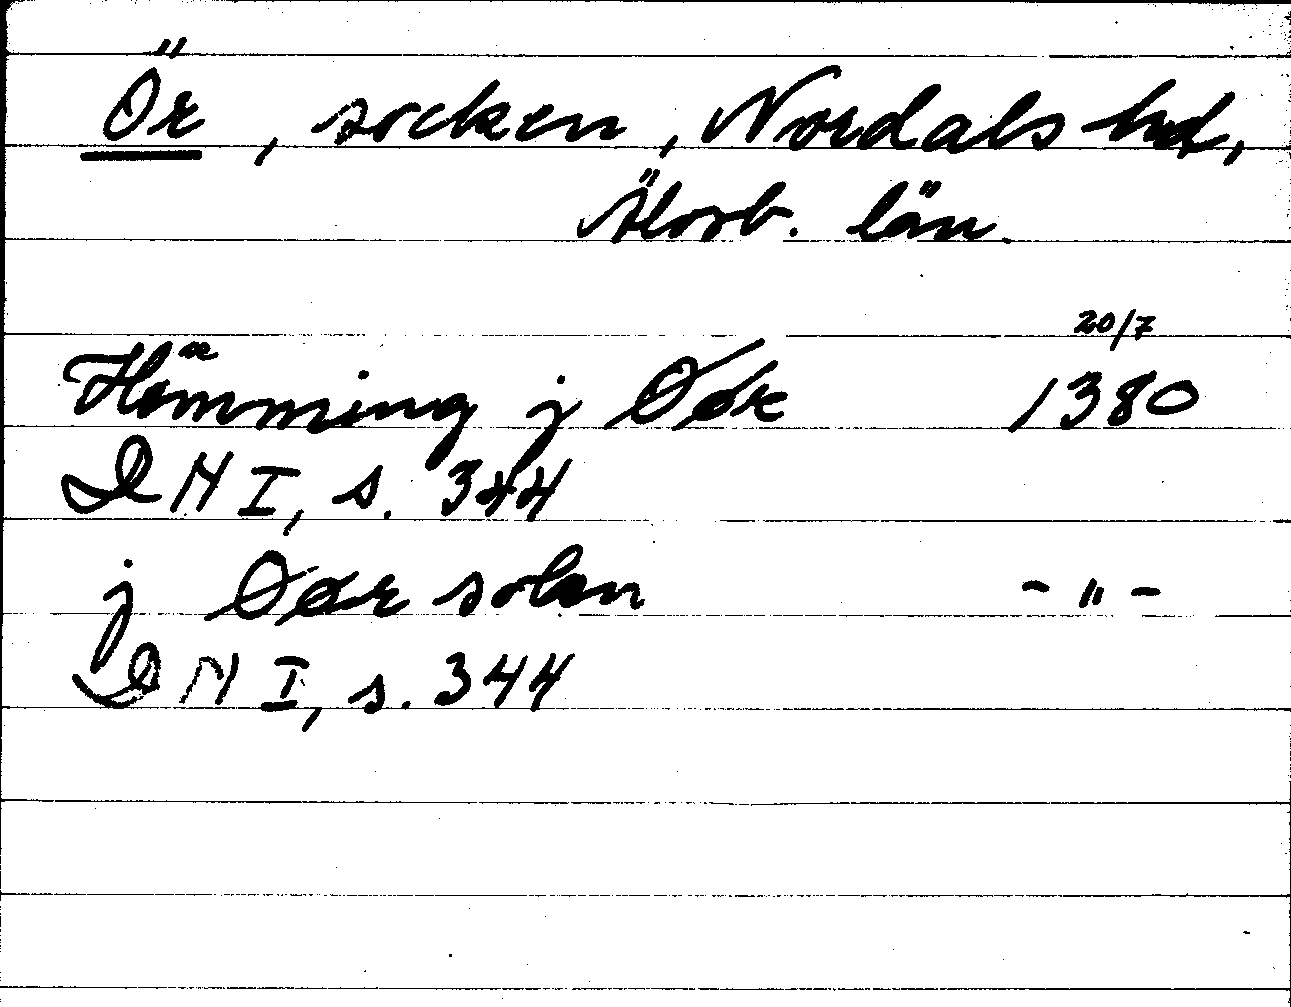 Ör, socken, Nordals hd,
Älvsb. län.
20/7
Hæmming j Øør 1380
DN I, s. 344
j Øør sokn - " -
DN I, s. 344